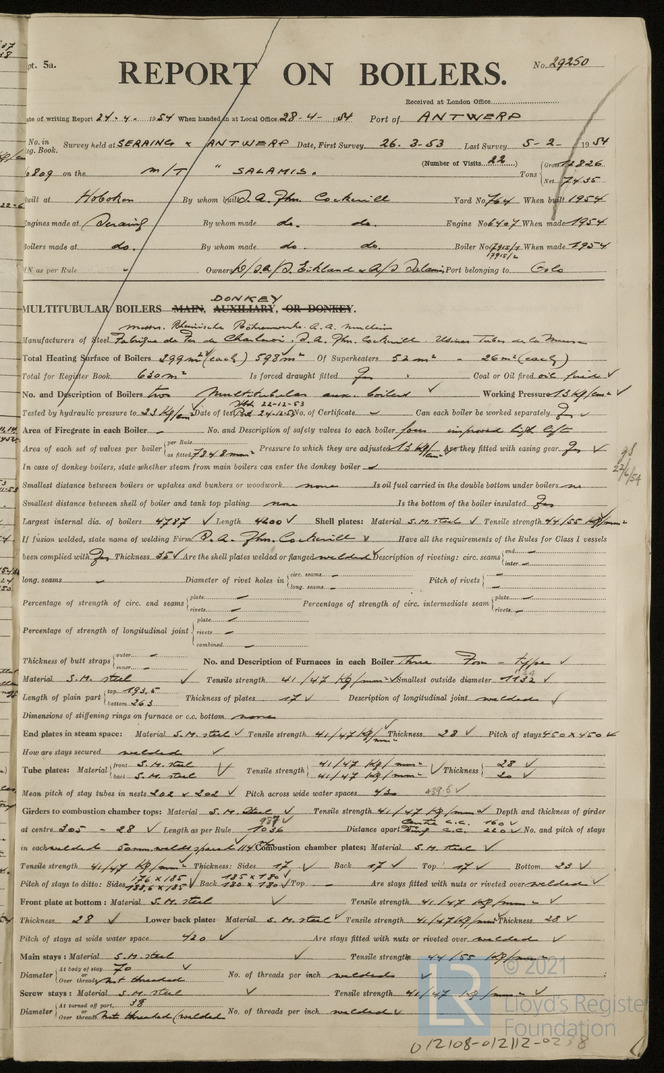 pt. 5a.
REPORT ON BOILERS.
No. 29250
Received at London Office
ate of writing Report 24.4. 1954 When handed in at Local Office 28-4- 1954 Port of ANTWERP
No. in Survey held at SERAING & ANTWERP Date, First Survey 26.3-53 Last Survey 5-2- 1954
g. Book.
(Number of Visits 22)
6809 on the m/T "SALAMIS. Tons Gross 12826
Net 7435
uilt at Hoboken By whom built S.A. Jhn. Cockerill Yard No. 764 When built 1954
ngines made at Seraing By whom made do. do. Engine No. 6407 When made 1954
oilers made at do. By whom made do. do. Boiler No. 7915/1 7915/2 When made 1954
N as per Rule - Owners Port belonging to Oslo
MULTITUBULAR BOILERS MAIN, AUXILIARY, OR DONKEY.
DONKEY
Manufacturers of Steel Fabrique de Fer de Charleroi. S.A. Jhn. Cockerill. Usines Tubes de la Meuse
Total Heating Surface of Boilers 299 m² (each) 598 m² Of Superheaters 52 m² - 26 m² (each)
Total for Register Book. 650 m² Is forced draught fitted Yes Coal or Oil fired oil fired
No. and Description of Boilers two Multitubular aux. boilers Working Pressure 13 kg/cm²
Tested by hydraulic pressure to 23 kg/cm² Date of test Stb. 22-12-53 Port 24-12-53 No. of Certificate - Can each boiler be worked separately Yes
Area of Firegrate in each Boiler - No. and Description of safety valves to each boiler four improved high lift
Area of each set of valves per boiler per Rule as fitted 7848 mm² Pressure to which they are adjusted 13 kg/cm² Are they fitted with easing gear Yes
In case of donkey boilers, state whether steam from main boilers can enter the donkey boiler -
Smallest distance between boilers or uptakes and bunkers or woodwork none Is oil fuel carried in the double bottom under boilers no
Smallest distance between shell of boiler and tank top plating none Is the bottom of the boiler insulated Yes
Largest internal dia. of boilers 4787 Length 4200 Shell plates: Material S.M. Steel Tensile strength 44/55 kg/mm²
If fusion welded, state name of welding Firm S.A. Jhn. Cockerill Have all the requirements of the Rules for Class I vessels
been complied with Yes Thickness 35 Are the shell plates welded or flanged welded Description of riveting: circ. seams end - inter. -
long. seams - Diameter of rivet holes in circ. seams - long. seams - Pitch of rivets -
Percentage of strength of circ. end seams plate - rivets - Percentage of strength of circ. intermediate seam plate - rivets -
Percentage of strength of longitudinal joint plate - rivets - combined -
Thickness of butt straps outer - inner - No. and Description of Furnaces in each Boiler Three Fox - type
Material S.M. steel Tensile strength 41/47 kg/mm² Smallest outside diameter 1132
Length of plain part top 193,5 bottom 263 Thickness of plates 17 Description of longitudinal joint welded
Dimensions of stiffening rings on furnace or c.c. bottom none
End plates in steam space: Material S.M. steel Tensile strength 41/47 kg/mm² Thickness 28 Pitch of stays 450 x 450
How are stays secured welded
Tube plates: Material front S.M. steel back S.M. steel Tensile strength 41/47 kg/mm² 41/47 kg/mm² Thickness 28 20
Mean pitch of stay tubes in nests 202 x 202 Pitch across wide water spaces 430 439.5
Girders to combustion chamber tops: Material S.M. Steel Tensile strength 41/47 kg/mm² Depth and thickness of girder
at centre 305 - 28 Length as per Rule 987 1036 Distance apart Centre C.C. 160 Wing C.C. 220 No. and pitch of stays
in each welded Combustion chamber plates: Material S.M. steel
Tensile strength 41/47 kg/mm² Thickness: Sides 17 Back 17 Top 17 Bottom 23
Pitch of stays to ditto: Sides 176 x 185 182,5 x 185 Back 185 x 180 180 x 180 Top - Are stays fitted with nuts or riveted over welded
Front plate at bottom: Material S.M. steel Tensile strength 41/47 kg/mm²
Thickness 28 Lower back plate: Material S.M. steel Tensile strength 41/47 kg/mm² Thickness 28
Pitch of stays at wide water space 420 Are stays fitted with nuts or riveted over welded
Main stays: Material S.M. steel Tensile strength 44/55 kg/mm²
Diameter At body of stay 70 or Over threads not threaded No. of threads per inch welded
Screw stays: Material S.M. steel Tensile strength 41/47 kg/mm²
Diameter At turned off part 38 or Over threads Not threaded (welded No. of threads per inch welded
© 2021
Lloyd's Registe
Foundation
012108-012112-0238